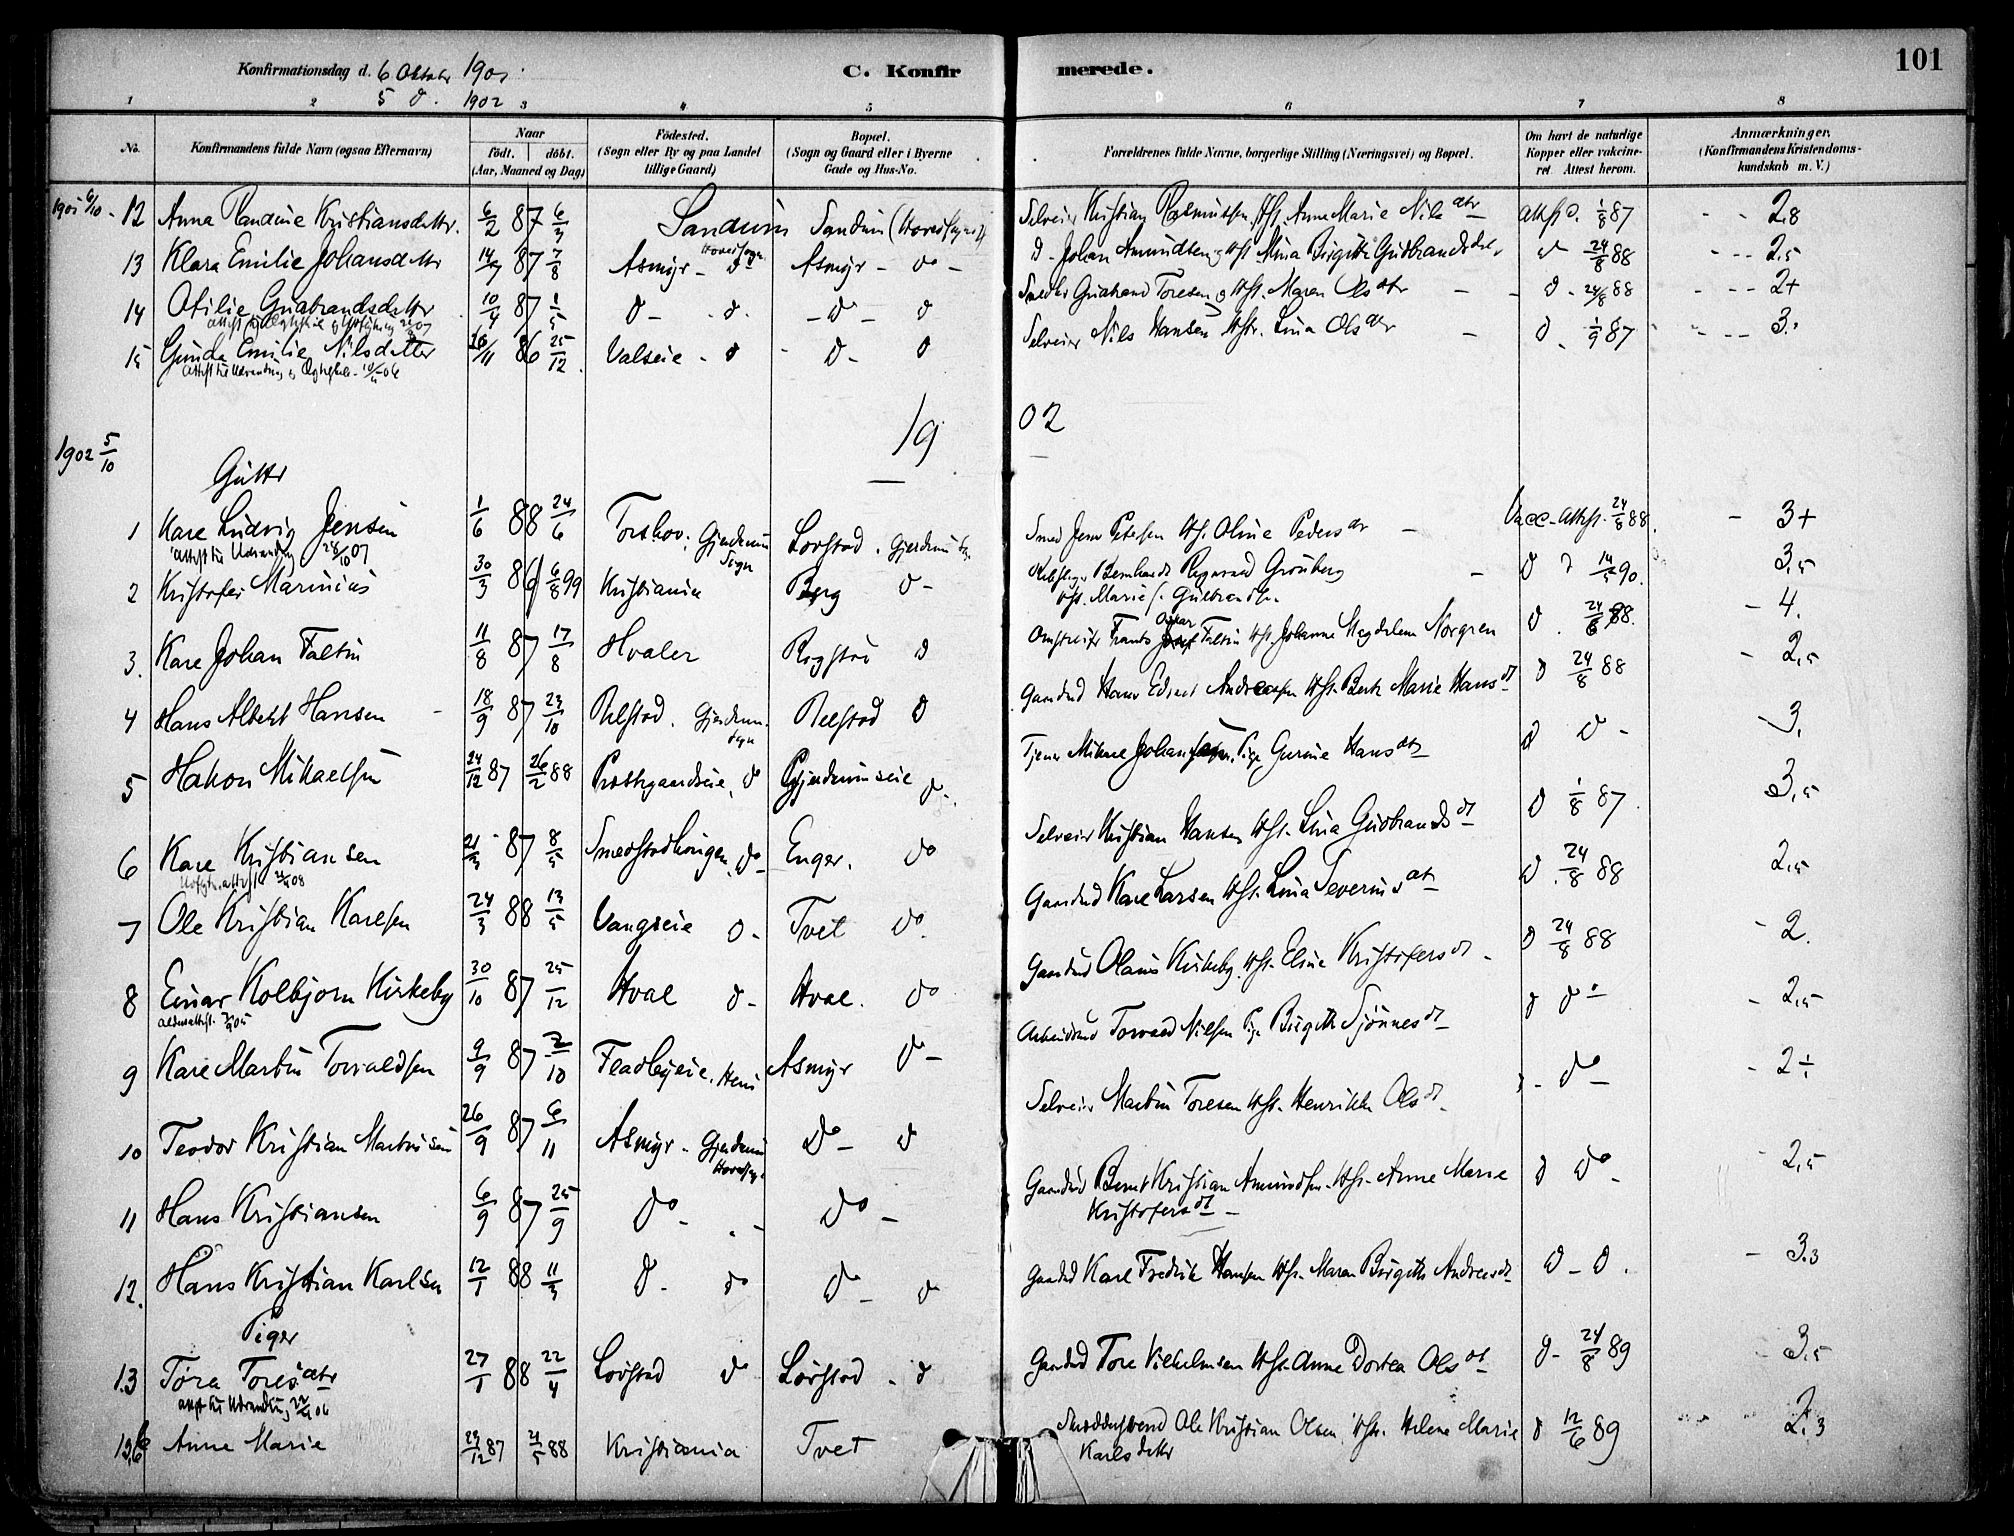 Konfirmationsdag d. 6 Oktober 1901.
5 d. 1902
C. Konfirmerede.
101
1 2 3 4 5 6 7 8
No. Konfirmandens fulde Navn (ogsaa Efternavn) Naar født. døbt. (Aar, Maaned og Dag) Fødested. (Sogn eller By og paa Landet tillige Gaard) Bopæl. (Sogn og Gaard eller i Byerne Gade og Hus-No. Forældrenes fulde Navne, borgerlige Stilling (Næringsvei) og Bopæl. Om havt de naturlige Kopper eller vakcineret. Attest herom. Anmærkninger. (Konfirmandens Kristendomskundskab m. V.)
1901 6/10 - 12 Anna Kristiansdttr. 6/2 87 Sandum Sandum (Hovedsognet) Selveier Kristian Rasmussen Hst. Anne Marie Nilsdtr 1/8 87 - - 2.8
13 Klara Emilie Johansdttr 14/7 87 7/8 Asmyr - do Hovedsogn Asmyr - do - d - Johan Amundsen og Hst Mina Birgitte Gudbrandsdtr d 24/8 88 - - - 2,5
14 Otilie Gudbrandsdttr 10/4 87 1/5 d - d. - d - d Smed Gudbrand Toresen og Hst. Maren Olsdtr - - d - 24/8 88 - - - 2+
15 Gunda Emilie Nilsdatter 26/11 86 25/12 Valseie - d - d - d Selveier Nils Hansen Hstr. Lina Olsdtr - d - 1/9 87 - - - 3.
Attest til Udvandring
1902 5/10
19 02
Gutter
1 Kare Ludvig Jensen 1/6 88 24/6 Torshov. Gjerdrum Sogn Lovstad. Gjerdrum Sogn Smed Jens Petersen Hst. Oline Pedersdtr - Vacc. attest. 24/8 88. - 3+
Attest til Udvandring 28/10 07
2 Kristofer Marinius 30/3 86 6/8 99 Kristiania Berg d - Bernhard Grønberg - d 14/5 90. 3,5
Hst. Marie
3. Kare Johan Faltin 11/8 87 17/8 Hvaler Rogstad d Frants Oskar Faltin Hst. Johanne Magdalene Norgren d. 24/6 88. - 4.
4 Hans Albert Hansen - 18/9 87 23/10 Relstad. Gjerdrum Sogn Relstad d Gaardbd Hans Edvart Andreasen Hst. Berte Marie Hansdt d 24/8 88 - 2,5
5 Hakon Mikaelsen 24/12 87 26/2 88 Prestegaardseie, do Gjerdrumseie do. Tjener Mikael Johansen, Pige Gurine Hansdtr d d - - 3.
6 Kare Kristiansen 87 8/5 Smedstadhougen, do Enger. do Selveier Kristian Hansen Hst. Lina Gudbrandsdt d 1/8 87. 3,5
7 Ole Kristian Karlsen 24/3 88 13/5 Vangseie d - Tvet do. Gaardbd Kare Larsen Hst. Lina Severinsdt d. 24/8 88 2,5
8 Einar Kolbjørn Kirkeby 30/10 87 25/12 Hval d - Hval. do Gaardbd Olaus Kirkeby, Hst. Eline Kristofersdt - d 24/8 88 - 2.
9 Kare Martin Torvaldsen 9/9 87 2/10 Fladbyeie. Heni Asmyr do - Arbeidsmd Torvald Nilsen Pige Birgitte Sjønnesdt d do - - 2,5
10 Teodor Kristian Martinsen 26/9 87 6/11 Asmyr - Gjerdrum Hovedsogn do - d Selveier Martin Toresen Hst. Henrikke Olsdt d - do - - 2÷
11 Hans Kristiansen 6/9 87 25/9 do - . - do - Gaardbd Bernt Kristian Amundsen. Hst. Anne Marie Kristofersdt - d do - - 2,5
12. Hans Kristian Karlsen 12/1 88 11/3 d - do do - do Gaardbd Karl Fredrik Hansen Hst. Maren Birgitte Andersdt d - d. - 3.3
Piger
13 Tora Toresdtr 27/1 88 22/4 Lovstad do Lovstad - d Gaardbd Tore Vilhelmsen Hst. Anne Dortea Olsdt d - 24/8 89 - 3.5
Anne Marie 29/12 87 21/5 88 Kristiania Tvet Ole Kristian Olsen, Hstr. Helene Marie Karlsdatter d 12/6 89 - - 2.3